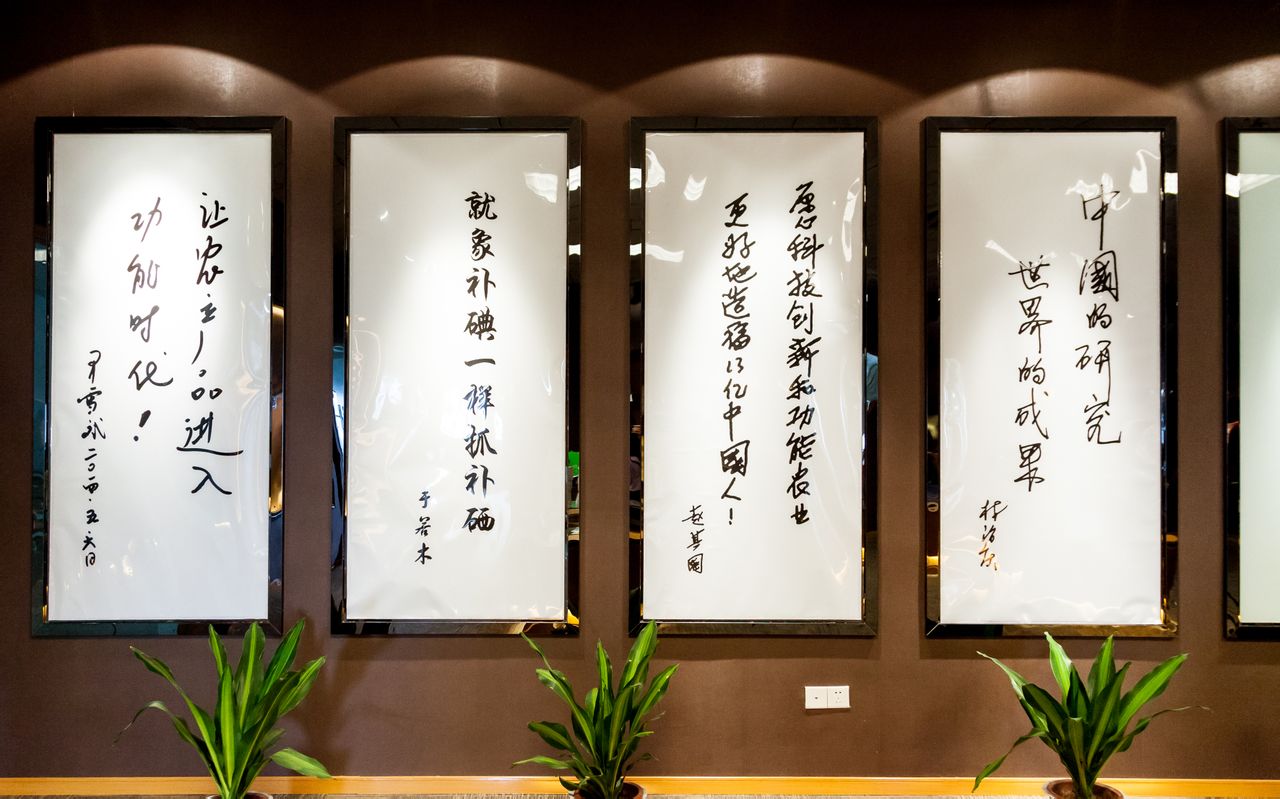 让农产品进入
功能时代！
尹雪斌二〇一四·五·六日
就象补碘一样抓补硒
于若木
愿科技创新和功能农业
更好地造福13亿中國人！
赵其國
中國的研究
世界的成果